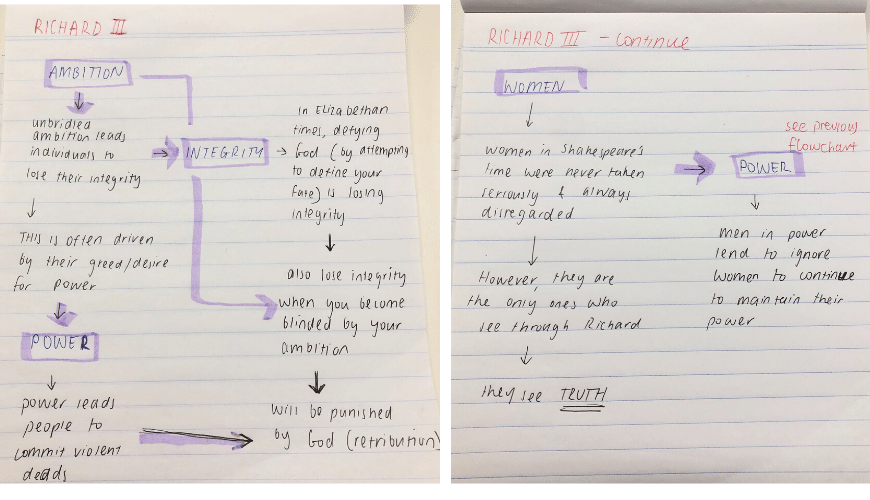 RICHARD III
AMBITION
unbridled
ambition leads
individuals to
lose their integrity
THIS is often driven
by their greed/desire
for power
POWER
power leads
people to
commit violent
deeds
INTEGRITY
In Elizabethan
times, defying
God (by attempting
to define your
fate) is losing
integrity
also lose integrity
when you become
blinded by your
ambition
will be punished
by God (retribution)
RICHARD III - continue
WOMEN
women in Shakespeare's
time were never taken
seriously & always
disregarded
However, they are
the only ones who
see through Richard
they see TRUTH
see previous
flowchart
POWER
men in power
tend to ignore
women to continue
to maintain their
power